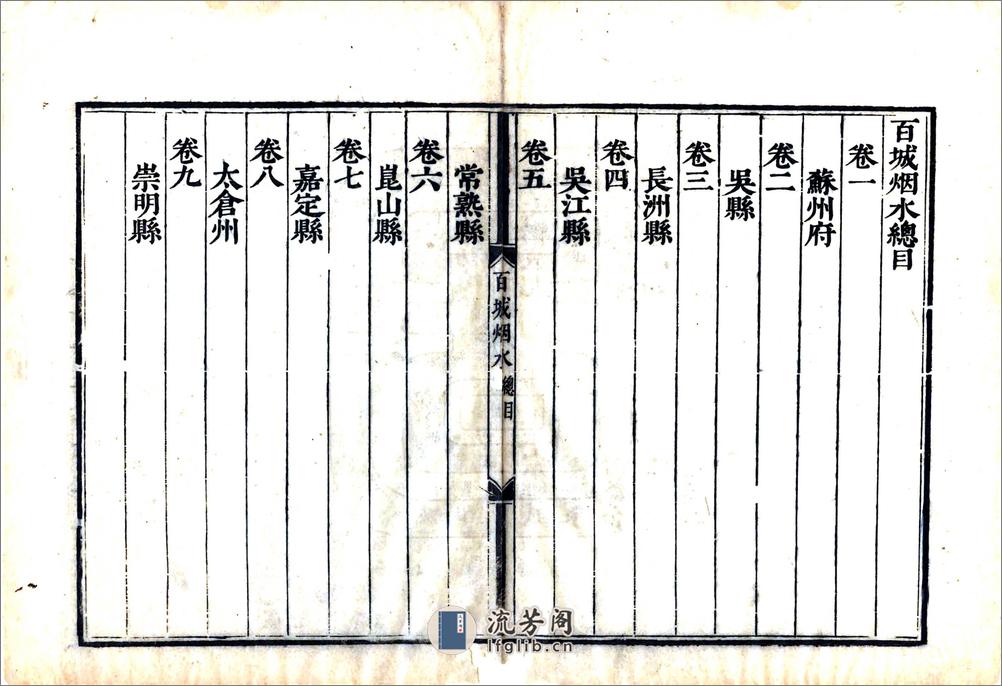 百城烟水總目
卷一
蘇州府
卷二
吳縣
卷三
長洲縣
卷四
吳江縣
卷五
百城烟水 總目
常熟縣
卷六
崑山縣
卷七
嘉定縣
卷八
太倉州
卷九
崇明縣
流芳阁
lfglib.cn